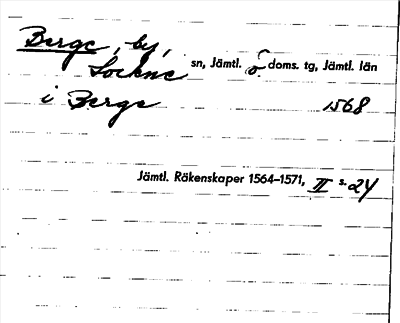 Berge, by,
Lockne sn, Jämtl. ö doms. tg, Jämtl. län
i Berge 1568
Jämtl. Räkenskaper 1564–1571, II s. 24